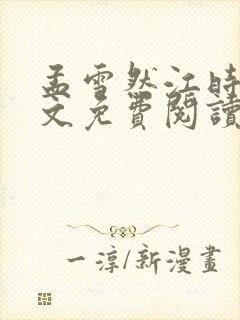 孟雪然江时
文免費閱讀
一淳/新漫畫